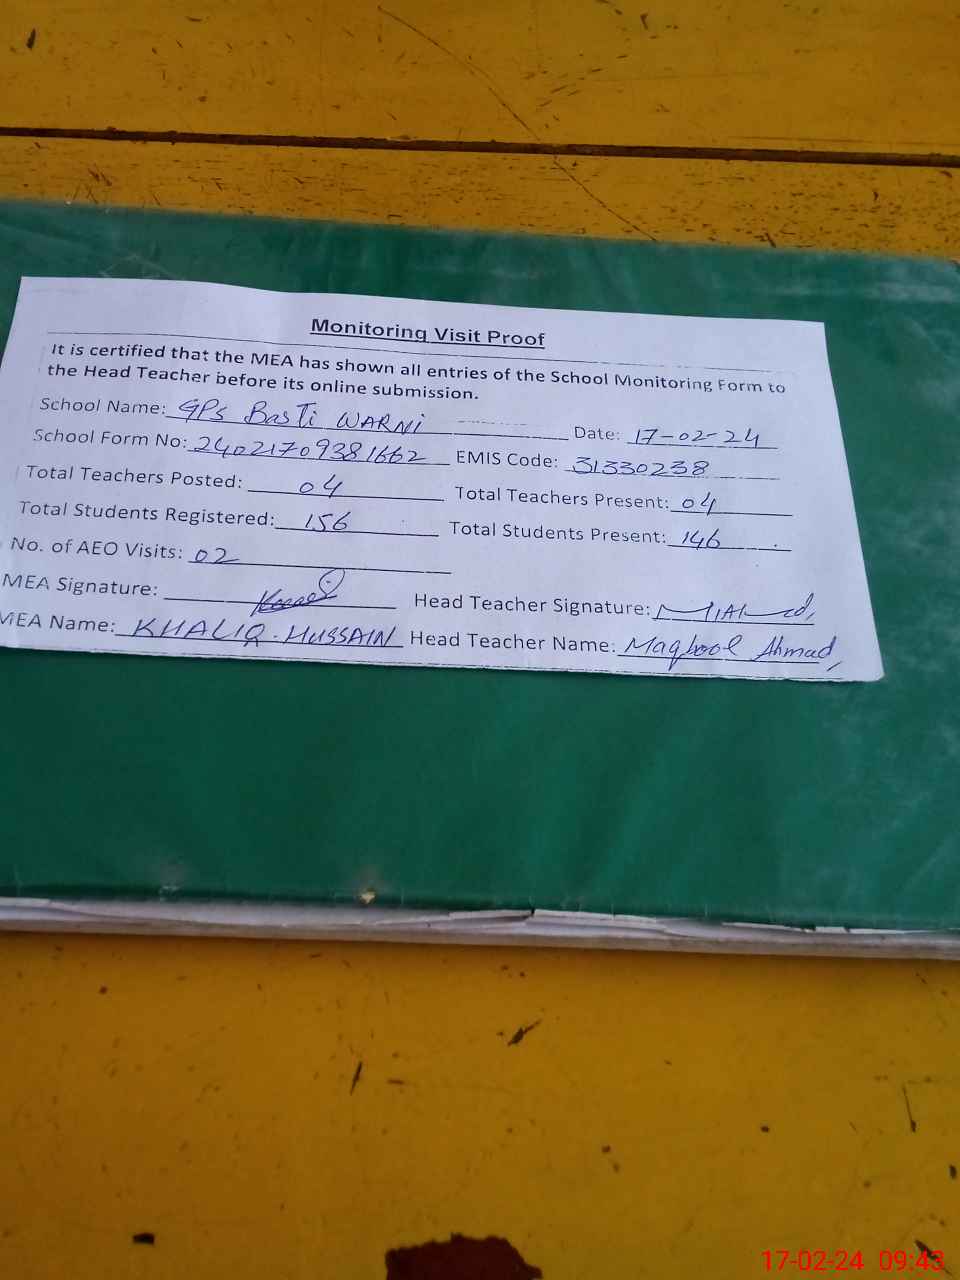 Monitoring Visit Proof
It is certified that the MEA has shown all entries of the School Monitoring Form to
the Head Teacher before its online submission.
School Name: GPS Basti WARNi Date: 17-02-24
School Form No: 24021709381662 EMIS Code: 31330238
Total Teachers Posted: 04 Total Teachers Present: 04
Total Students Registered: 156 Total Students Present: 146
No. of AEO Visits: 02
MEA Signature: Head Teacher Signature:
MEA Name: KHALIQ. HUSSAIN Head Teacher Name: Maqbool Ahmad,
17-02-24 09:43